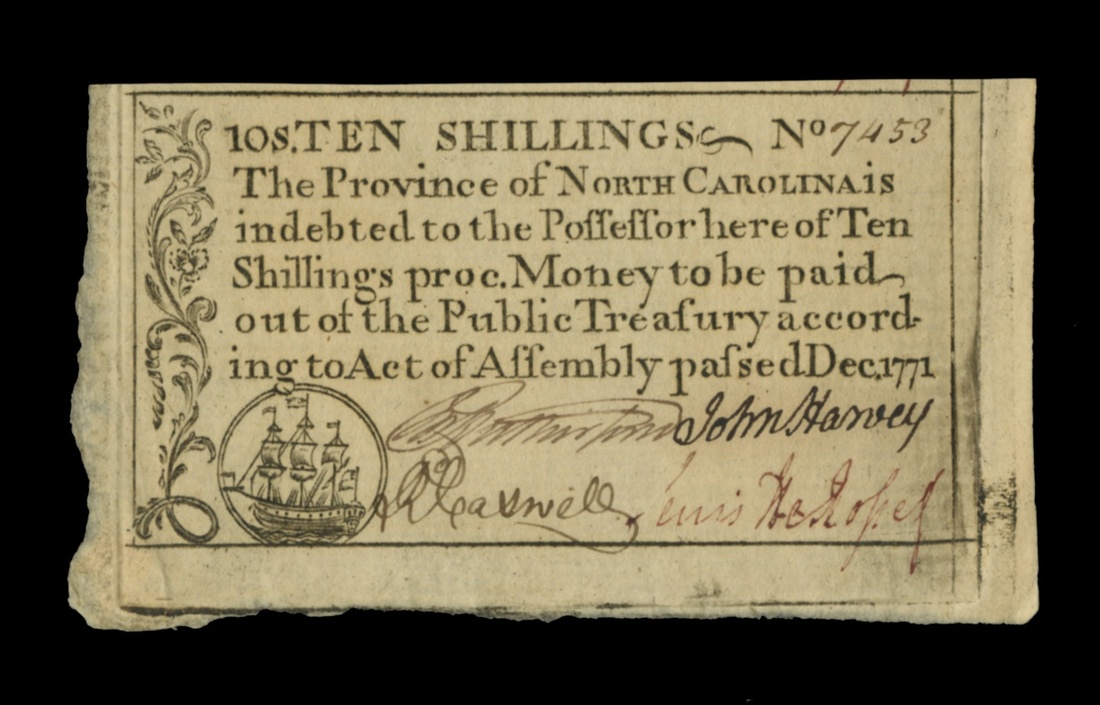 10s.TEN SHILLINGS No 7453
The Province of NORTH CAROLINA is
indebted to the Poſſeſſor here of Ten
Shillings proc. Money to be paid
out of the Public Treaſury accord-
ing to Act of Aſſembly paſsed Dec. 1771
John Harvey
R Caswell Lewis